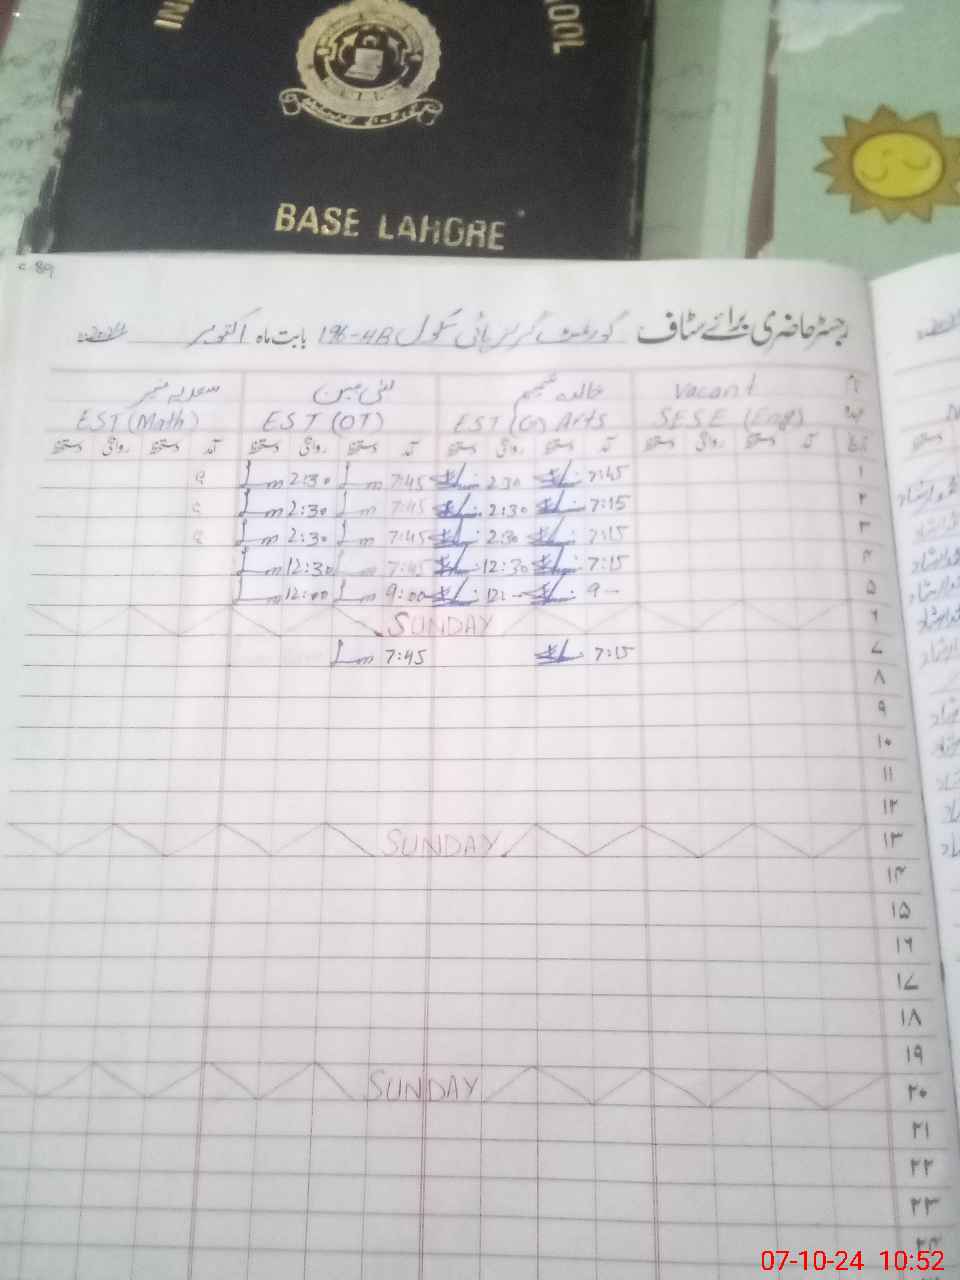 BASE LAHORE
89
رجسٹر حاضری برائے سٹاف گورنمنٹ گرلز ہائی سکول 196-4B بابت ماہ اکتوبر 2024
Vacant خالدہ شمیم لبنیٰ مبین سعدیہ منیر
SESE (Eng) EST (G) Arts EST (OT) EST (Math)
تاریخ آمد دستخط روانگی دستخط آمد دستخط روانگی دستخط آمد دستخط روانگی دستخط آمد دستخط روانگی دستخط
۱ 7:45 2:30 7:45 2:30
۲ 7:15 2:30 7:45 2:30
۳ 7:15 2:30 7:45 2:30
۴ 7:15 12:30 7:45 12:30
۵ 9- 12:- 9:00 12:00
۶ SUNDAY
۷ 7:15 7:45
۸
۹
۱۰
۱۱
۱۲
۱۳ SUNDAY
۱۴
۱۵
۱۶
۱۷
۱۸
۱۹
۲۰ SUNDAY
۲۱
۲۲
۲۳
۲۴
07-10-24 10:52